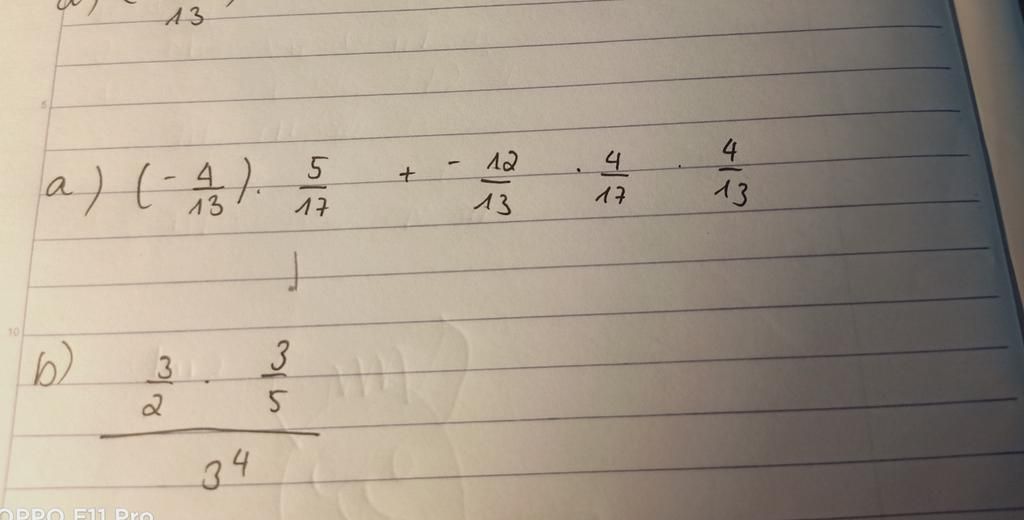 13
5
a) (-4/13) · 5/17 + -12/13 · 4/17 · 4/13
10
b) 3/2 · 3/5
3^4
OPPO F11 Pro